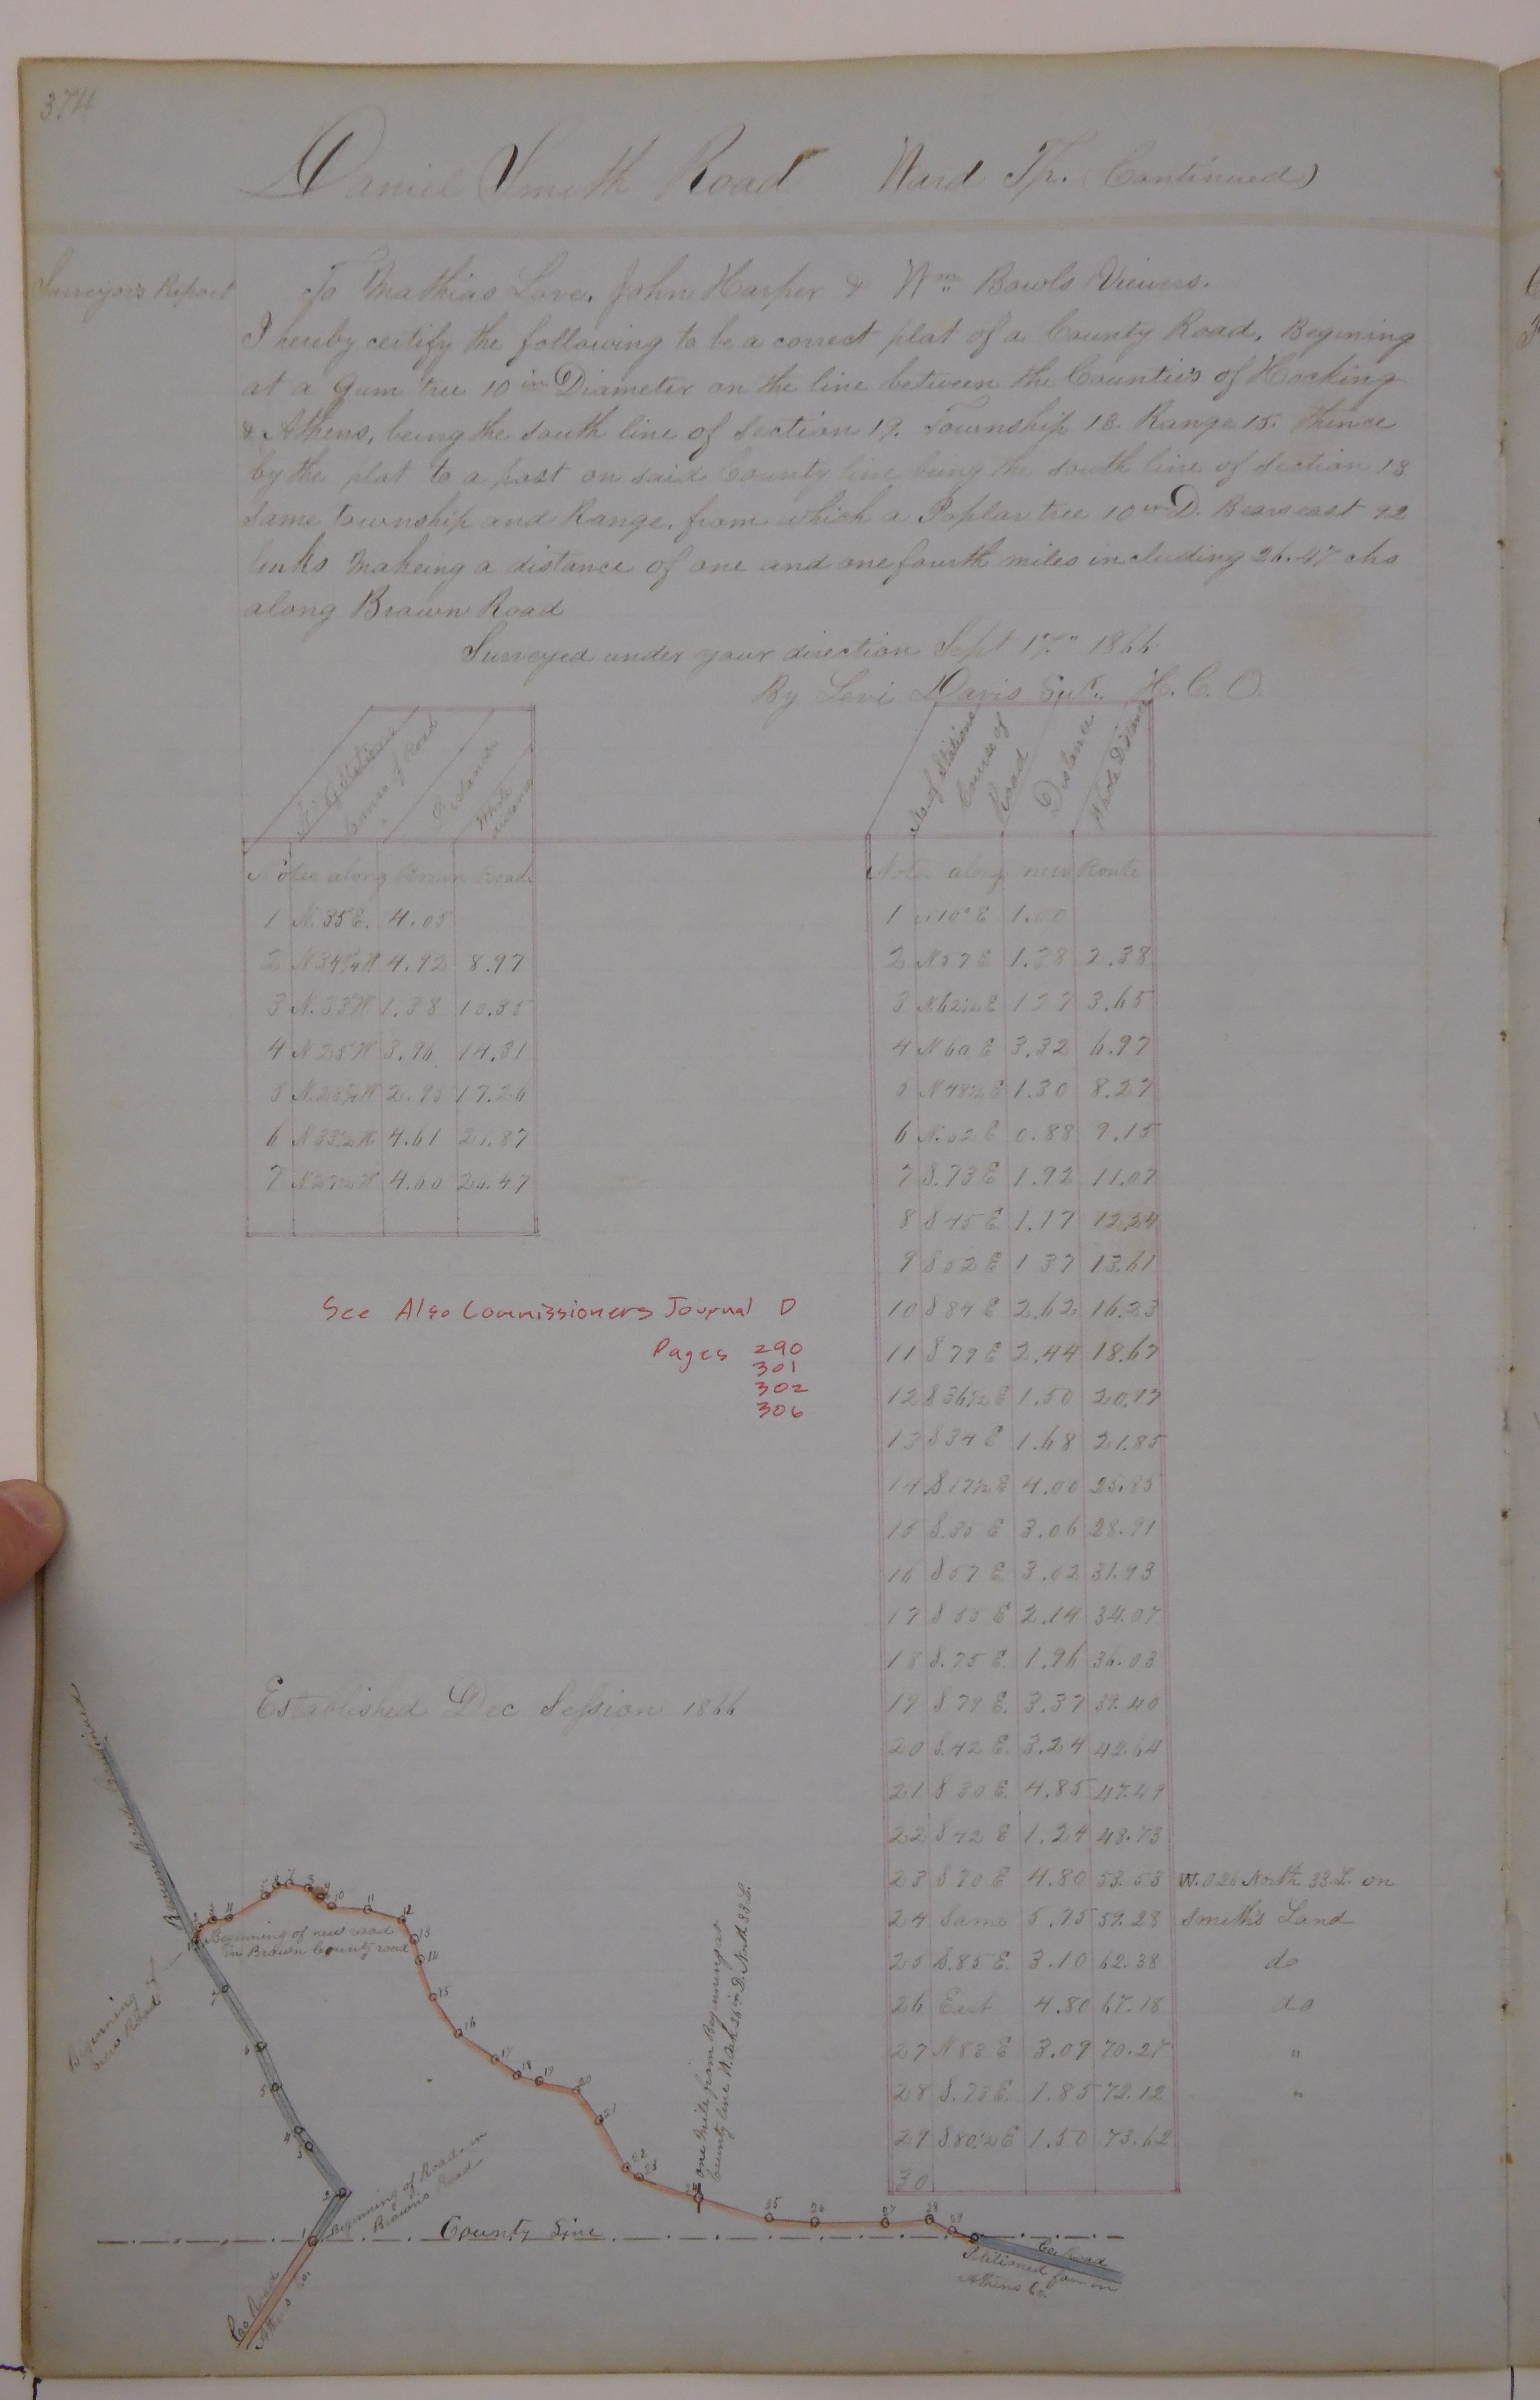 374
Daniel Smith Road Ward Tp. (Continued)
Surveyors Report
To Mathias Love, John Harper & Wm Bowls Viewers.
I hereby certify the following to be a correct plat of a County Road, Begining
at a Gum tree 10 in Diameter on the line between the Counties of Hocking
& Athens, being the south line of Section 19. Township 13. Range 15. thence
by the plat to a post on said County line being the south line of Section 13
Same township and Range, from which a Poplar tree 10 in D. Bears east 92
links Makeing a distance of one and one fourth miles including 26.47 chs
along Brown Road
Surveyed under your direction Sept 17" 1866
By Levi Davis Sur. H. C. O.
No of Stations Course of Road Distance Whole distance
Notes along Brown Road
1 N. 35 E. 4.05
2 N 34 3/4 W 4.92 8.97
3 N. 33 W 1.38 10.35
4 N 25 W 3.96 14.31
5 N. 23 3/4 W 2.95 17.26
6 N 33 1/2 W. 4.61 21.87
7 N 27 1/2 W 4.60 26.47
No of Stations Course of Road Distance Whole Distance
Notes along new Route
1 N 10° E 1.00
2 N 57 E 1.38 2.38
3 N. 62 1/2 E 1 27 3.65
4 N 60 E 3.32 6.97
5 N 48 1/2 E 1.30 8.27
6 N. 52 E 0.88 9.15
7 S. 73 E 1.92 11.07
8 S 45 E. 1.17 12.24
9 S 52 E 1 37 13.61
10 S 84 E 2.62 16.23
11 S 79 E 2.44 18.67
12 S 36 1/2 E 1.50 20.17
13 S 34 E 1.68 21.85
14 S 17 1/2 E 4.00 25.85
15 S. 35 E 3.06 28.91
16 S 57 E. 3.02 31.93
17 S 55 E 2.14 34.07
18 S. 75 E. 1.96 36.03
19 S 79 E. 3.37 39.40
20 S. 42 E. 3.24 42.64
21 S 30 E. 4.85 47.49
22 S 42 E 1.24 48.73
23 S 70 E 4.80 53.53 W. O 26 North 33 L. on
24 Same 5.75 59.28 Smith's Land
25 S. 85 E. 3.10 62.38 do
26 East 4.80 67.18 do
27 N 83 E 3.09 70.27 "
28 S. 73 E. 1.85 72.12 "
29 S 80 1/2 E 1.50 73.62
30
See Also Commissioners Journal D
Pages 290
301
302
306
Established Dec Session 1866
Brown Road Continued
Beginning of new road
in Brown County road
Beginning of
new Road
Beginning of Road in
Browns Road
one mile from Beginning at
County line W. Oak 26 in D. North 33 L.
County Line
Co. Road
Athens Co.
Co. Road
Petitioned for in
Athens Co.